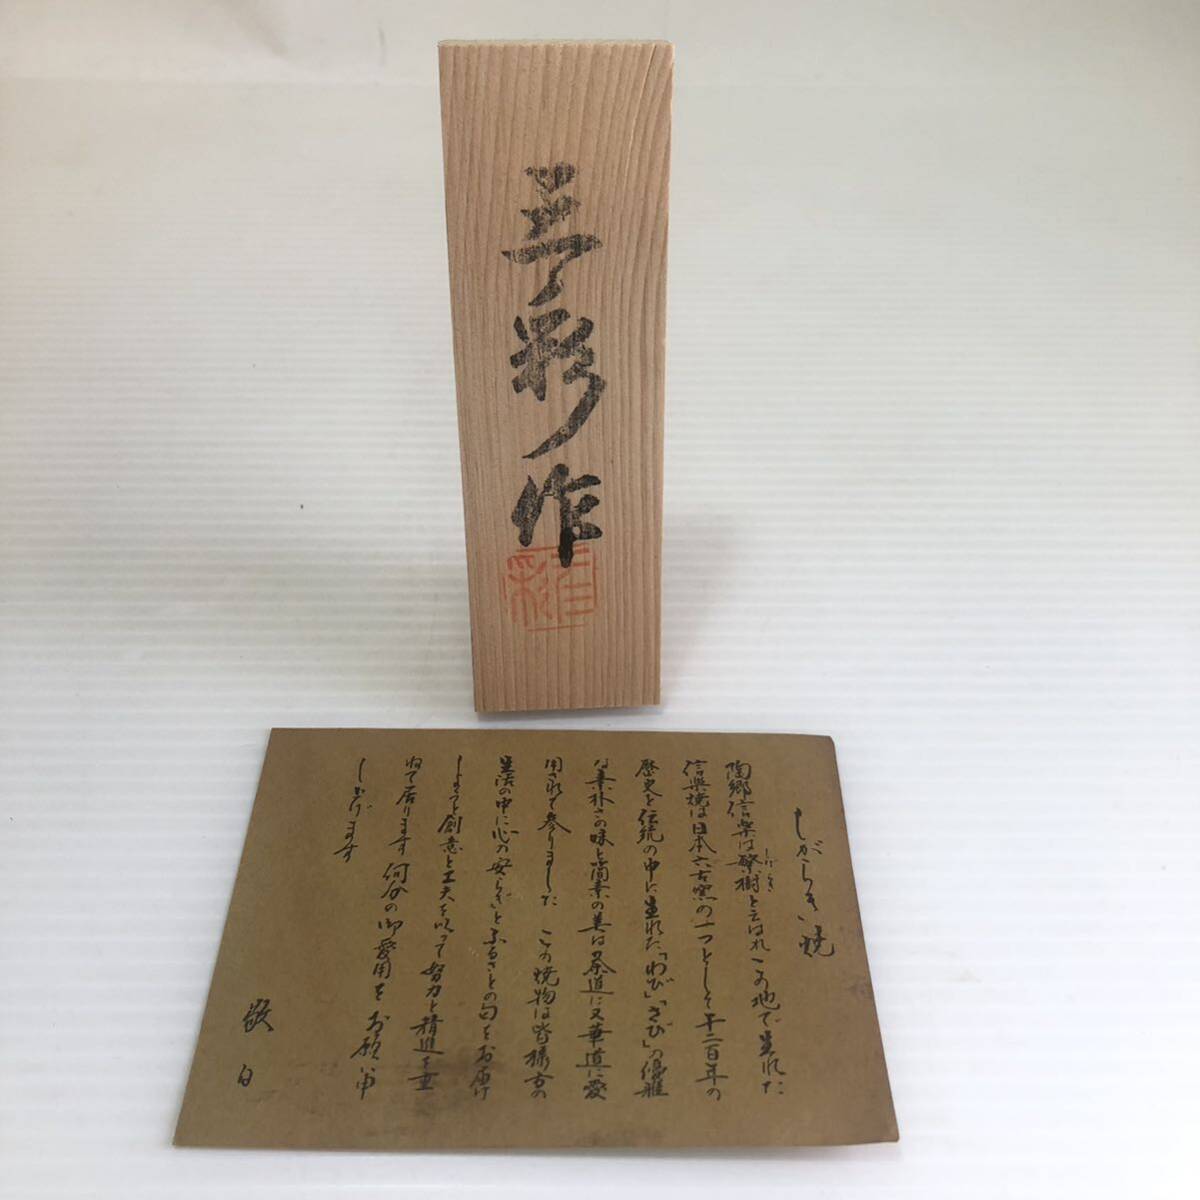 彩作
しがらき焼
陶郷信楽は繁樹と云はれこの地で生れた
しげるき
信楽焼は日本六古窯の一つとして千二百年の
歴史と伝統の中に生れた「わび」「さび」の優雅
な素朴さの味と簡素の美は茶道に又華道に愛
用されて参りました この焼物は皆様方の
生活の中に心の安らぎとふるさとの匂をお届け
しようと創意と工夫を以って努力と精進を重
ねて居ります 何分の御愛用をお願い申
しあげます
敬白